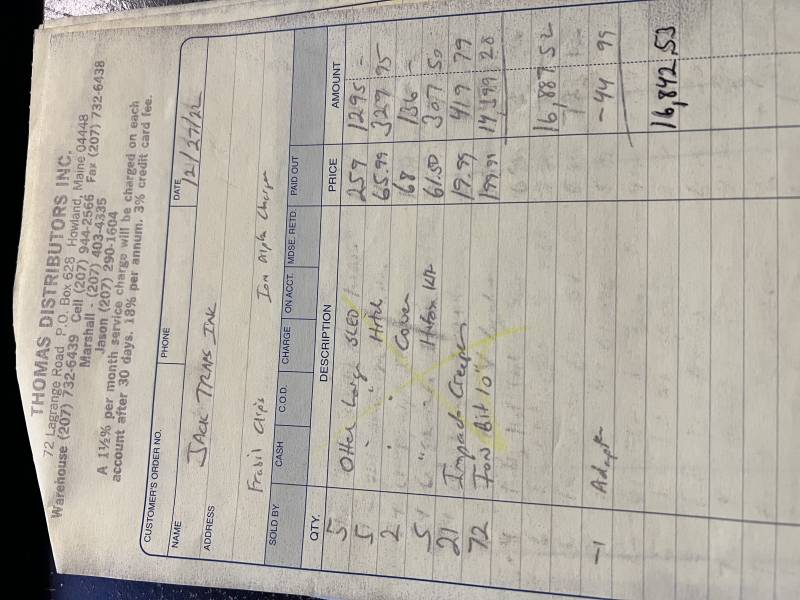 THOMAS DISTRIBUTORS INC.
72 Lagrange Road P.O. Box 628 Howland, Maine 04448
Warehouse (207) 732-6439 Cell (207) 944-2566 Fax (207) 732-6438
Marshall - (207) 403-4335
Jason (207) 290-1604
A 1½% per month service charge will be charged on each
account after 30 days. 18% per annum. 3% credit card fee.
CUSTOMER'S ORDER NO. PHONE DATE 12/27/22
NAME JACK TRAPS INK
ADDRESS
Frabil Clips Ion Alpha Charger
SOLD BY CASH C.O.D. CHARGE ON ACCT. MDSE. RETD. PAID OUT
QTY. DESCRIPTION PRICE AMOUNT
5 Otter Large SLED 259 1295 -
5 " " Hitch 65.99 329 95
2 " " Cover 68 136 -
5 " " 61.50 307 50
21 Impact Creeper 19.99 419 79
72 Ion Bit 10" 199.99 14,399 28
16,887 52
-1 Adapter -44 99
16,842.53